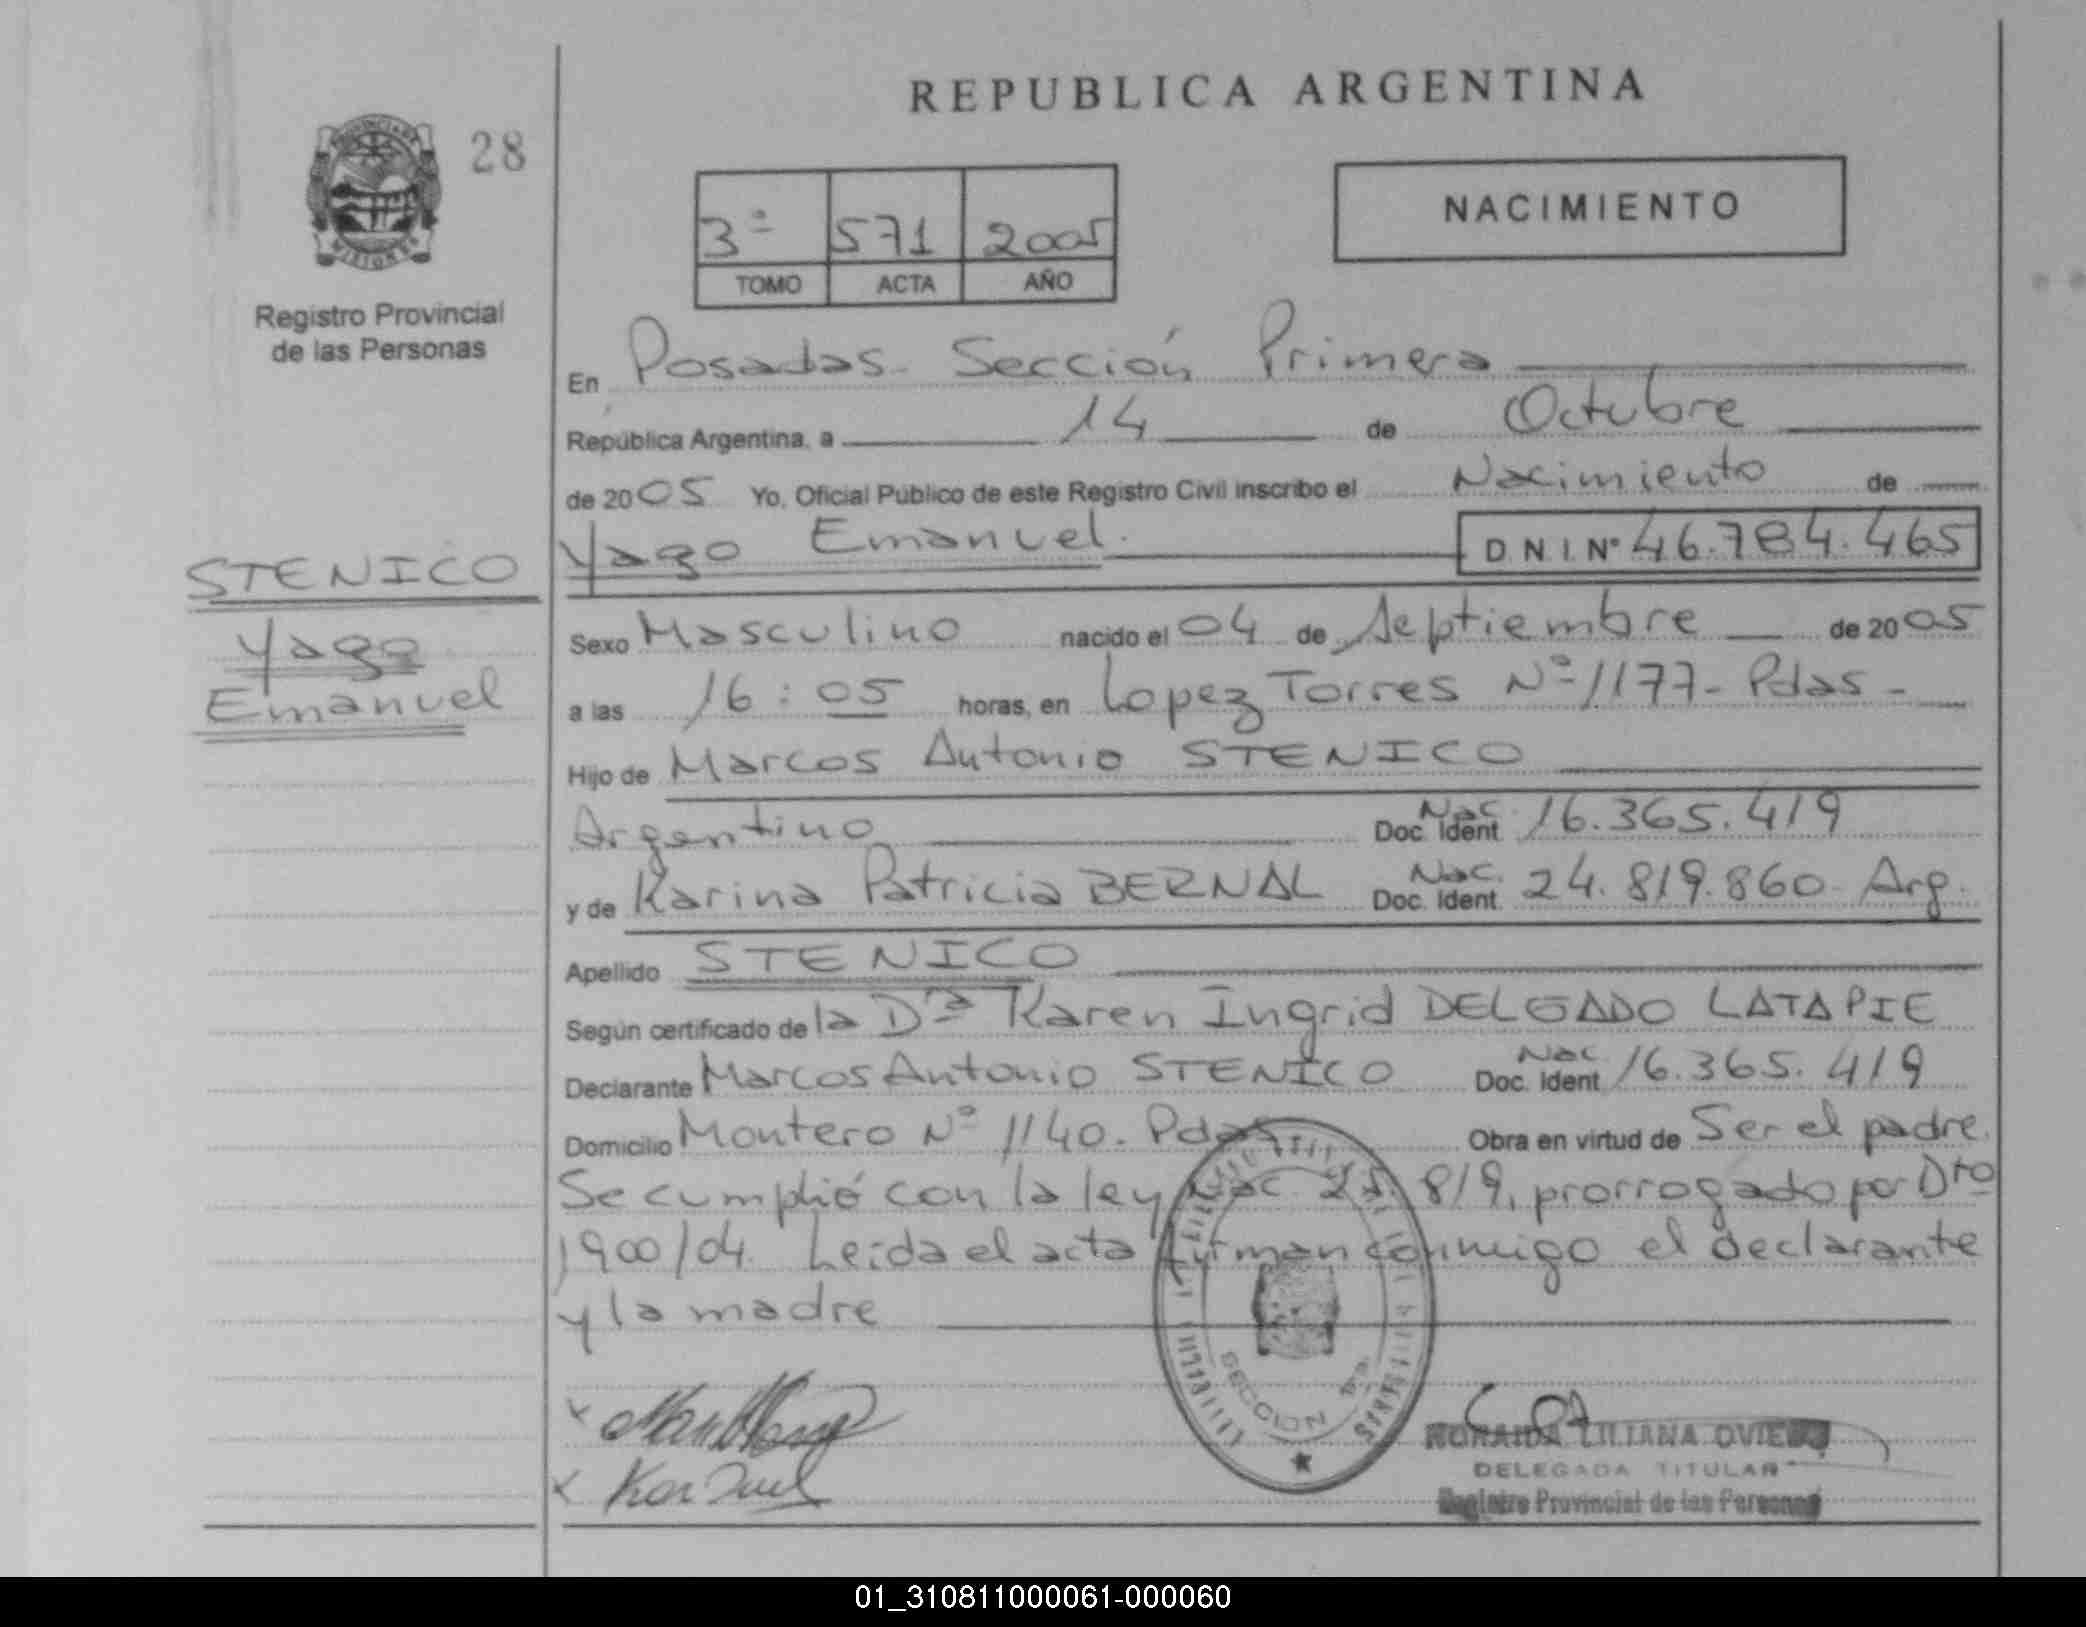 REPUBLICA ARGENTINA
28
NACIMIENTO
3º 571 2005
TOMO ACTA AÑO
Registro Provincial
de las Personas
En Posadas - Sección Primera
República Argentina, a 14 de Octubre
de 2005 Yo, Oficial Público de este Registro Civil inscribo el Nacimiento de
Yago Emanuel. D.N.I. Nº 46.784.465
STENICO
Yago
Emanuel
Sexo Masculino nacido el 04 de Septiembre de 2005
a las 16:05 horas, en Lopez Torres Nº 1177 - Pdas -
Hijo de Marcos Antonio STENICO
Argentino Doc. Ident. Nac. 16.365.419
y de Karina Patricia BERNAL Doc. Ident. Nac. 24.819.860 - Arg.
Apellido STENICO
Según certificado de la Dra Karen Ingrid DELGADO LATAPIE
Declarante Marcos Antonio STENICO Doc. Ident. Nac. 16.365.419
Domicilio Montero Nº 1140. Pdas Obra en virtud de Ser el padre.
Se cumplió con la ley Nac. 25.819, prorrogado por Dto
1900/04. Leida el acta firman conmigo el declarante
y la madre
SECCION 1ra
LILIANA OVIEDO
DELEGADA TITULAR
Registro Provincial de las Personas
01_310811000061-000060